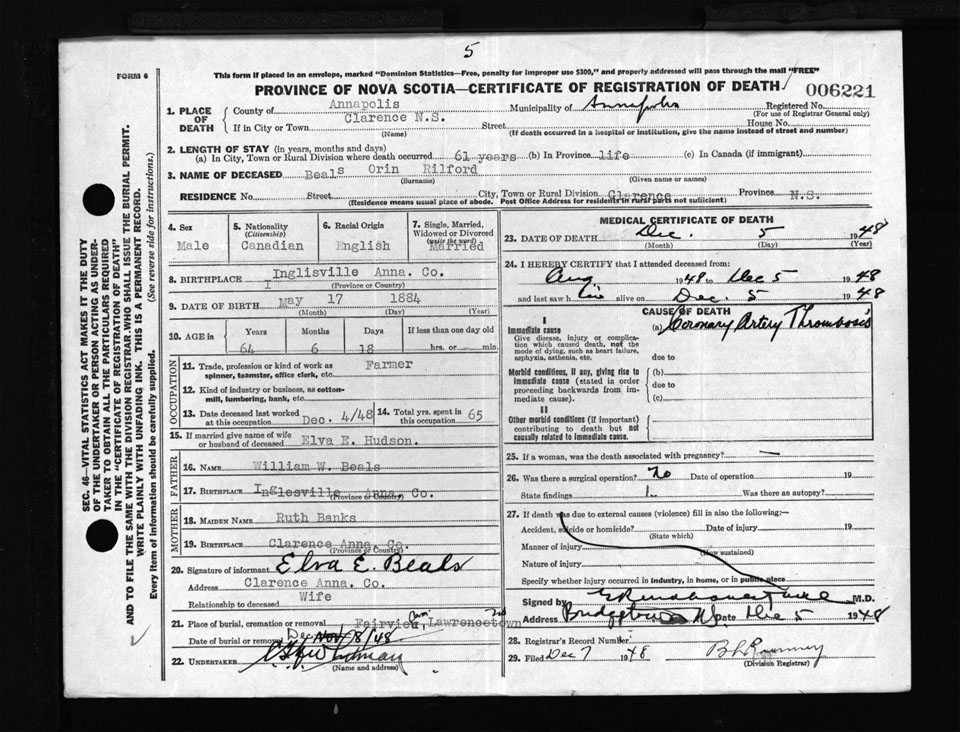 5
FORM 6
This form if placed in an envelope, marked "Dominion Statistics—Free, penalty for improper use $300," and properly addressed will pass through the mail "FREE"
PROVINCE OF NOVA SCOTIA—CERTIFICATE OF REGISTRATION OF DEATH
006221
1. PLACE OF DEATH
County of Annapolis Municipality of Annapolis Registered No.
(For use of Registrar General only)
If in City or Town Clarence N.S. Street House No.
(Name) (If death occurred in a hospital or institution, give the name instead of street and number)
2. LENGTH OF STAY (in years, months and days)
(a) In City, Town or Rural Division where death occurred 61 years (b) In Province life (c) In Canada (if immigrant)
3. NAME OF DECEASED Beals Orin Rilford
(Surname) (Given name or names)
RESIDENCE No. Street City, Town or Rural Division Clarence Province N.S.
(Residence means usual place of abode. Post Office Address for residents in rural parts not sufficient)
4. Sex
Male
5. Nationality
(Citizenship)
Canadian
6. Racial Origin
English
7. Single, Married, Widowed or Divorced
(write the word)
Married
8. BIRTHPLACE Inglisville Anna. Co.
I (Province or Country)
9. DATE OF BIRTH May 17 1884
(Month) (Day) (Year)
10. AGE in Years Months Days If less than one day old
64 6 18 hrs. or min.
OCCUPATION
11. Trade, profession or kind of work as Farmer
spinner, teamster, office clerk, etc.
12. Kind of industry or business, as cotton-
mill, lumbering, bank, etc.
13. Date deceased last worked at this occupation Dec. 4/48
14. Total yrs. spent in this occupation 65
15. If married give name of wife or husband of deceased Elva E. Hudson.
FATHER
16. NAME William W. Beals
17. BIRTHPLACE Inglesville Anna. Co.
(Province or Country)
MOTHER
18. MAIDEN NAME Ruth Banks
19. BIRTHPLACE Clarence Anna. Co.
(Province or Country)
20. Signature of informant Elva E. Beals
Address Clarence Anna. Co.
Relationship to deceased Wife
21. Place of burial, cremation or removal Fairview Lawrencetown
Date of burial or removal Dec Nov/8/48
22. UNDERTAKER
(Name and address)
MEDICAL CERTIFICATE OF DEATH
23. DATE OF DEATH Dec. 5 1948
(Month) (Day) (Year)
24. I HEREBY CERTIFY that I attended deceased from:
Aug 1948 to Dec 5 1948
and last saw him alive on Dec. 5 1948
CAUSE OF DEATH
I
Immediate cause
Give disease, injury or complication which caused death, not the mode of dying, such as heart failure, asphyxia, asthenia, etc.
(a) Coronary Artery Thrombosis
due to
Morbid conditions, if any, giving rise to immediate cause (stated in order proceeding backwards from immediate cause).
(b)
due to
(c)
II
Other morbid conditions (if important) contributing to death but not causally related to immediate cause.
25. If a woman, was the death associated with pregnancy? —
26. Was there a surgical operation? no Date of operation 19
State findings Was there an autopsy?
27. If death was due to external causes (violence) fill in also the following:—
Accident, suicide or homicide? Date of injury 19
(State which)
Manner of injury
(How sustained)
Nature of injury
Specify whether injury occurred in industry, in home, or in public place
Signed by M.D.
Address Bridgetown N.S. Date Dec 5 1948
28. Registrar's Record Number
29. Filed Dec 7 1948
(Division Registrar)
SEC. 46—VITAL STATISTICS ACT MAKES IT THE DUTY
OF THE UNDERTAKER OR PERSON ACTING AS UNDER-
TAKER TO OBTAIN ALL THE PARTICULARS REQUIRED
IN THE "CERTIFICATE OF REGISTRATION OF DEATH"
AND TO FILE THE SAME WITH THE DIVISION REGISTRAR WHO SHALL ISSUE THE BURIAL PERMIT.
WRITE PLAINLY WITH UNFADING INK. THIS IS A PERMANENT RECORD.
Every item of information should be carefully supplied. (See reverse side for instructions.)